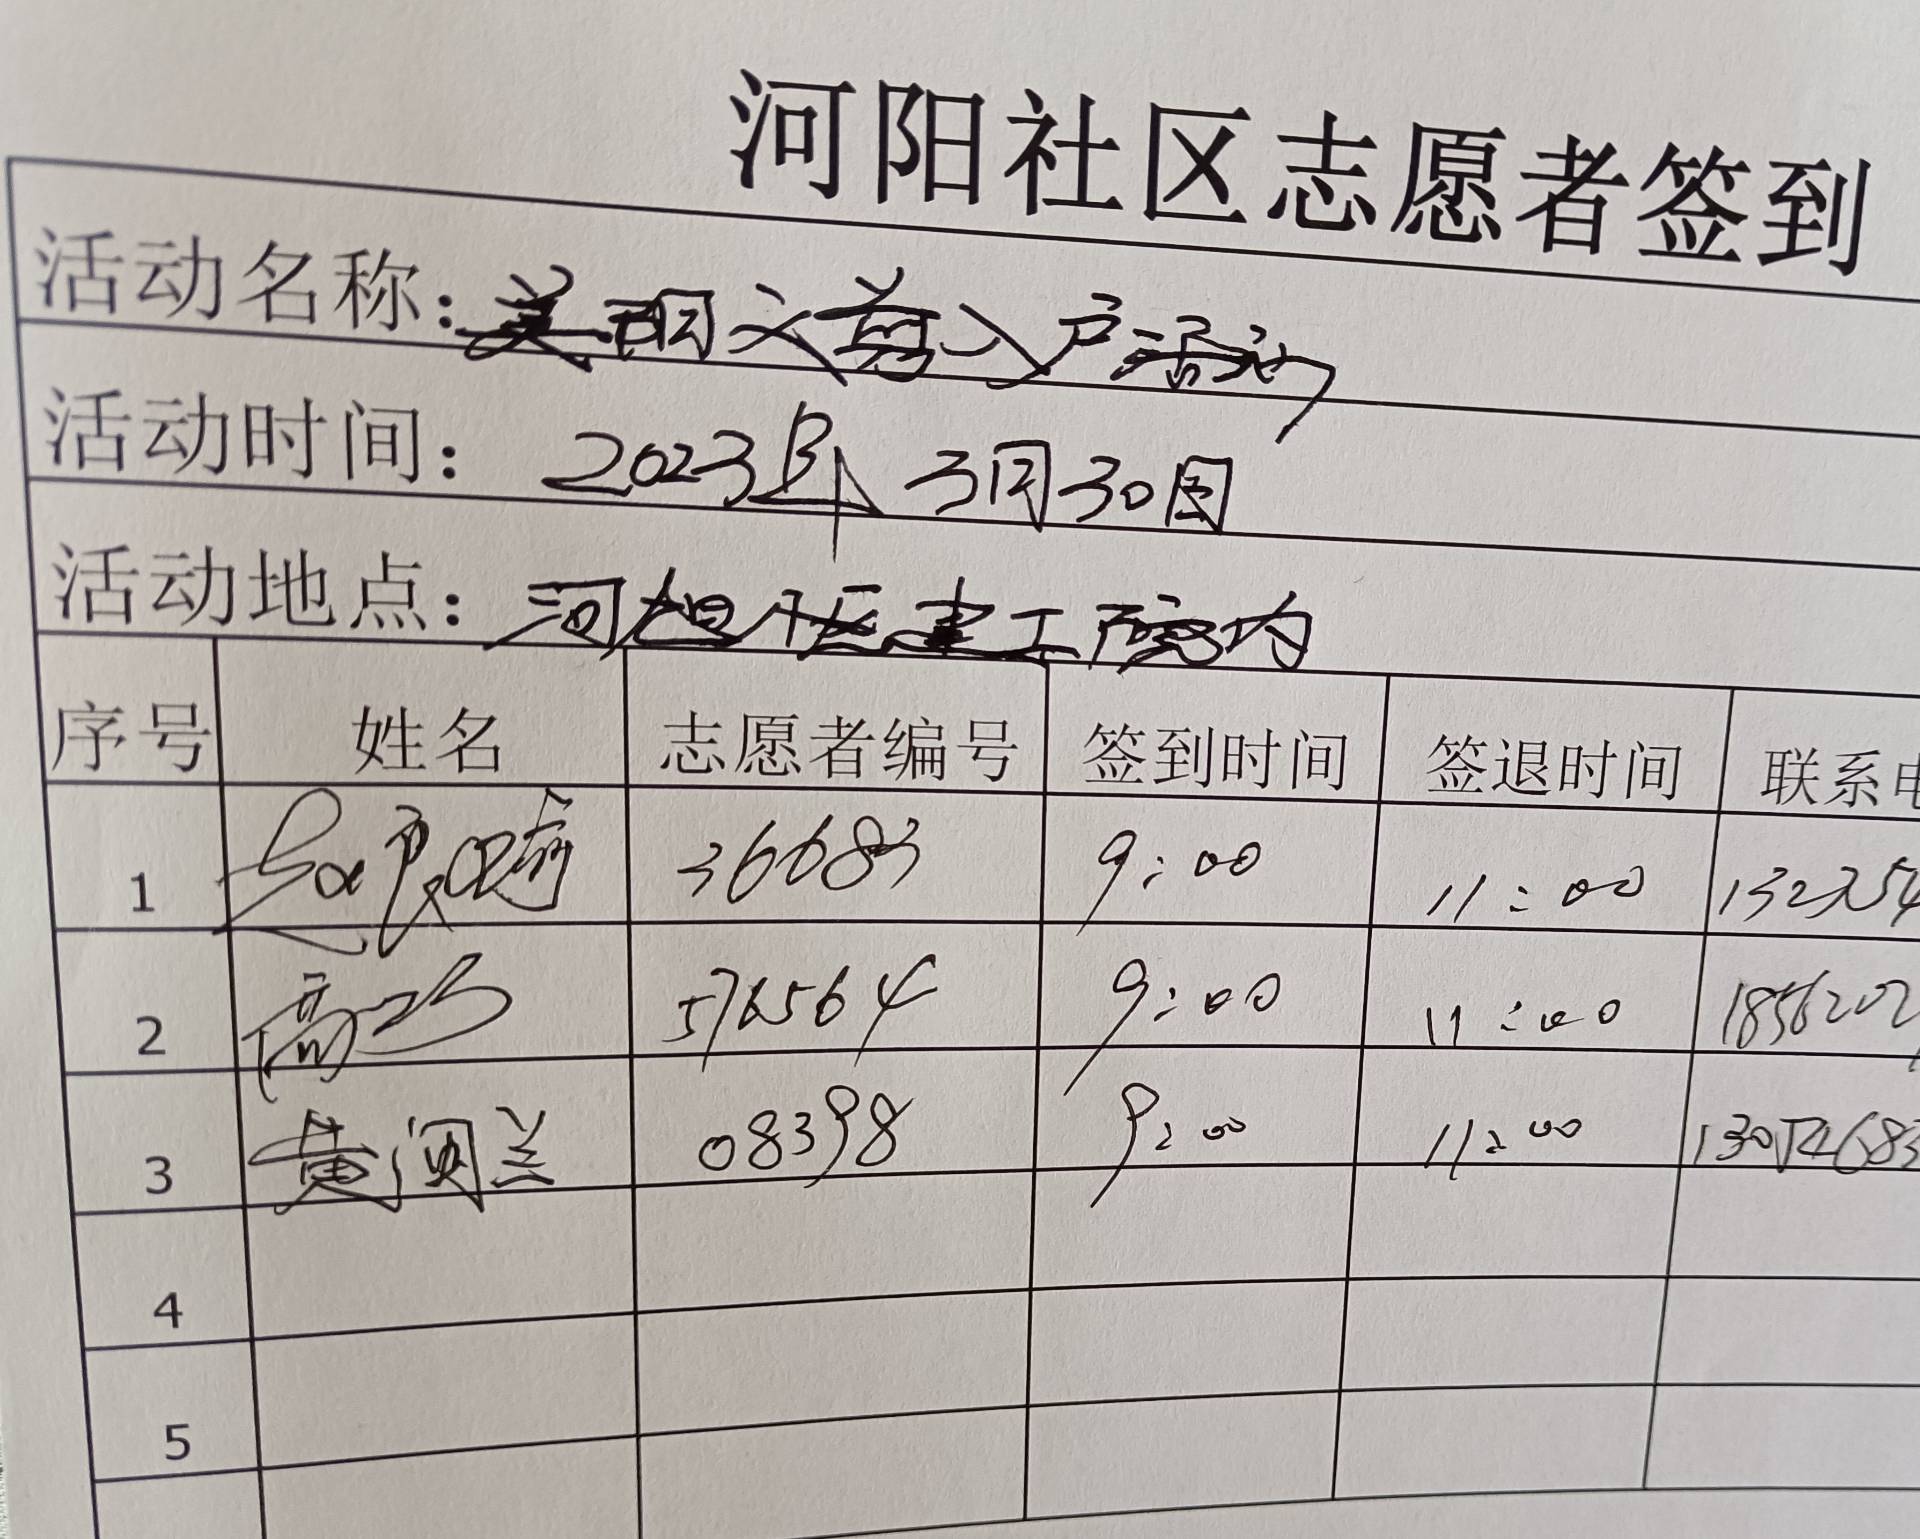 河阳社区志愿者签到
活动名称：美丽义剪入户活动
活动时间：2023年3月30日
活动地点：河阳社区建工院内
序号 姓名 志愿者编号 签到时间 签退时间 联系
1 36683 9:00 11:00
2 高 576564 9:00 11:00 1856202
3 黄润兰 08398 9:00 11:00
4
5